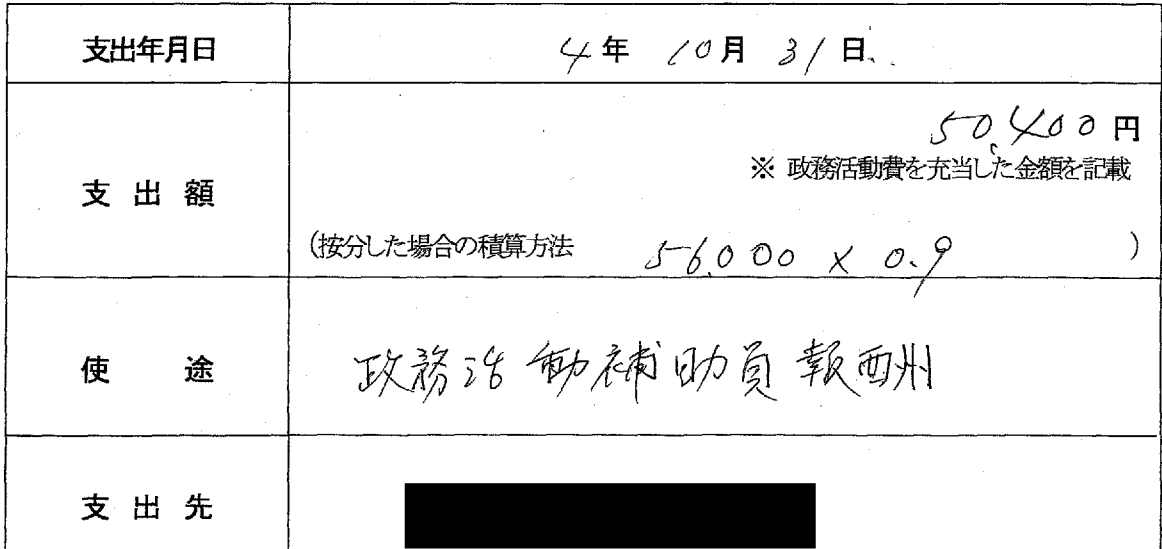 支出年月日 4年 10月 31日
50,400円
※ 政務活動費を充当した金額を記載
支出額
(按分した場合の積算方法 56,000 × 0.9 )
使途 政務活動補助員報酬
支出先